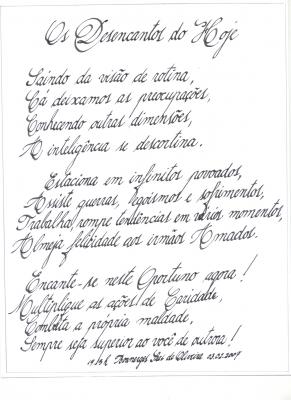 Os Desencantos do Hoje
Saindo da visão de rotina,
Cá deixamos as preocupações,
Conhecendo outras dimensões,
A inteligência se descortina.
Estaciona em infinitos povoados,
Assiste guerras, egoísmos e sofrimentos,
Trabalha, rompe tendências em vários momentos,
Almeja felicidade aos irmãos Amados.
Encante-se neste Oportuno agora!
Multiplique as ações de Caridade,
Combata a própria maldade,
Sempre seja superior ao você de outrora!
de Oliveira